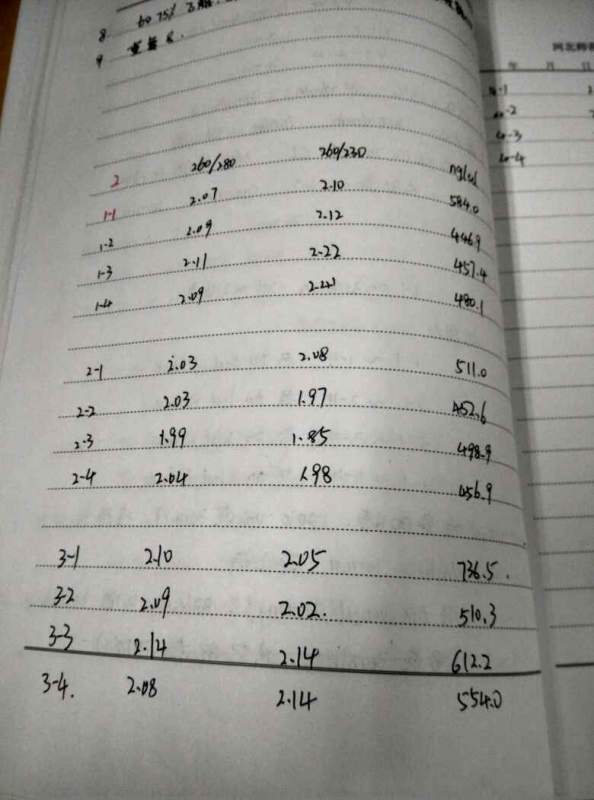 8 60 75%
9
河北师
年 月 日
-1
-2
-3
-4
2 260/280 260/230 ng/ul
1-1 2.07 2.10 584.0
1-2 2.09 2.12 446.9
1-3 2.11 2.22 457.4
1-4 2.09 480.1
2-1 2.03 2.08 511.0
2-2 2.03 1.97 452.6
2-3 1.99 1.85 498.9
2-4 2.04 1.98 456.9
3-1 2.10 2.05 736.5.
3-2 2.09 2.02. 510.3
3-3 2.14 2.14 612.2
3-4. 2.08 2.14 554.0